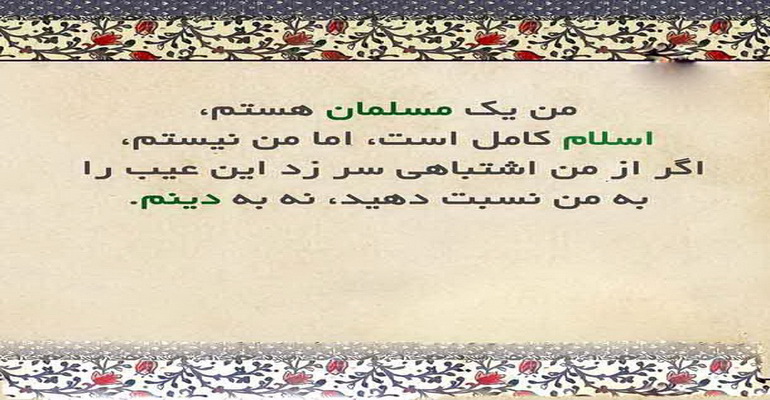 من یک مسلمان هستم،
اسلام کامل است، اما من نیستم،
اگر از من اشتباهی سر زد این عیب را
به من نسبت دهید، نه به دینم.